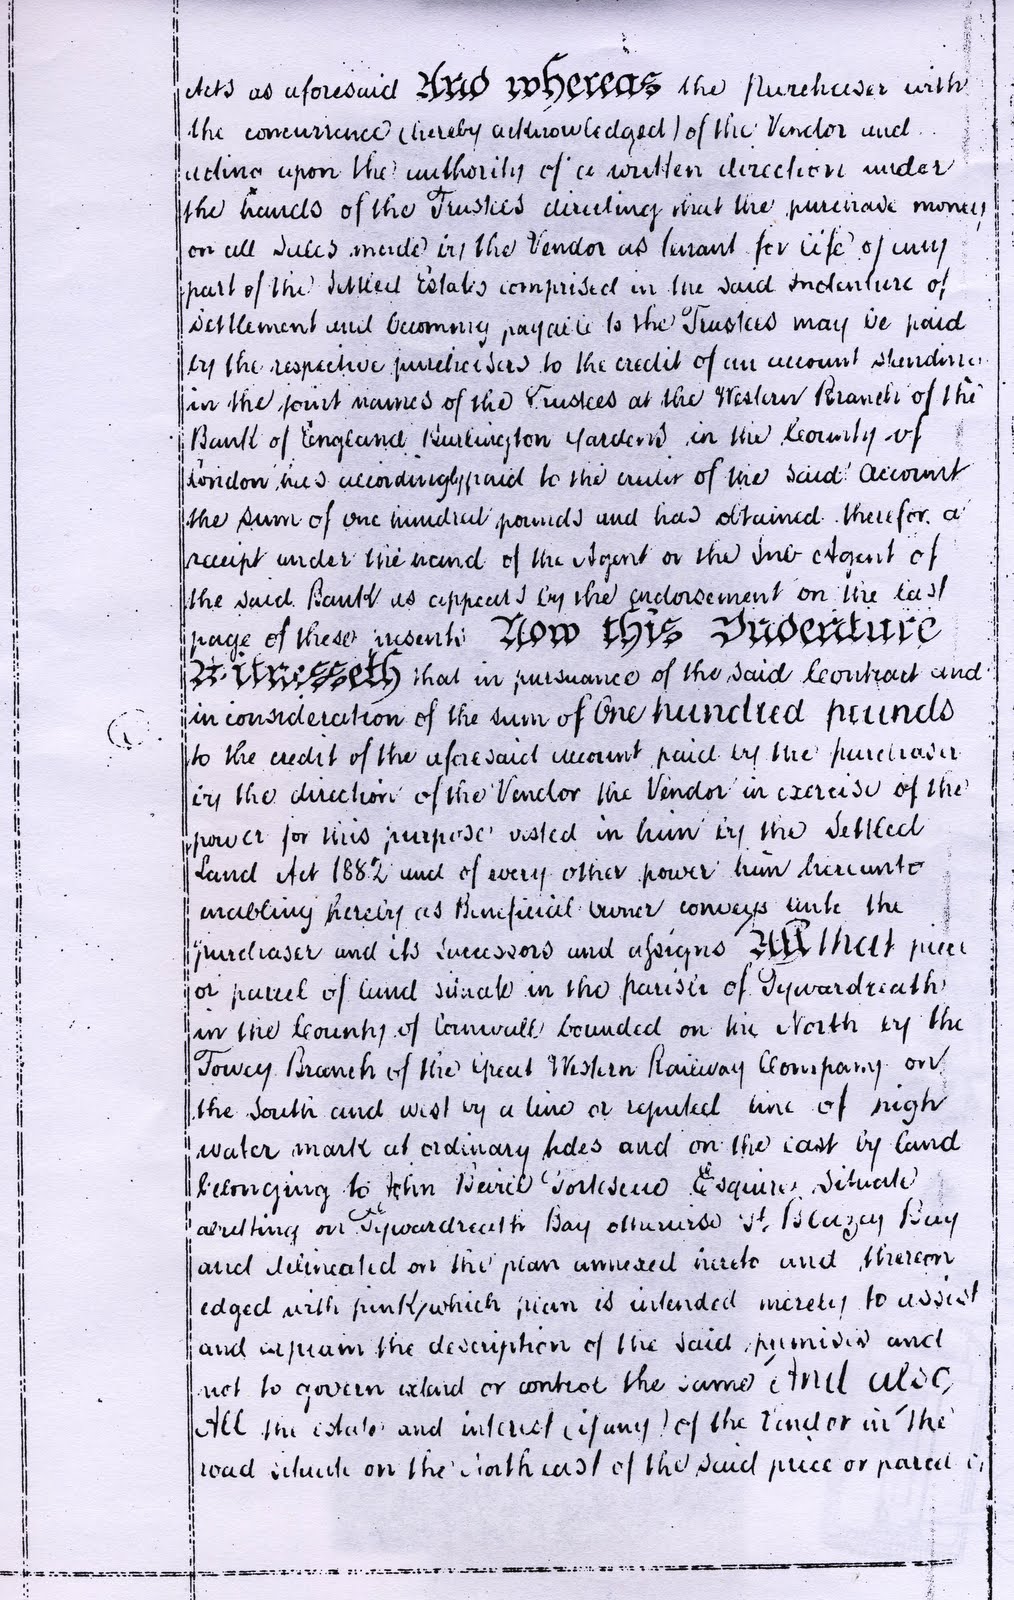 Acts as aforesaid And whereas the Purchaser with
the concurrence (hereby acknowledged) of the Vendor and
acting upon the authority of a written direction under
the hands of the Trustees directing that the purchase money
on all sales made by the Vendor as tenant for life of any
part of the Settled Estates comprised in the said Indenture of
Settlement and becoming payable to the Trustees may be paid
by the respective purchasers to the credit of an account standing
in the joint names of the Trustees at the Western Branch of the
Bank of England Burlington Gardens in the County of
London has accordingly paid to the credit of the said Account
the sum of one hundred pounds and has obtained therefor a
receipt under the hand of the Agent or the Sub Agent of
the said Bank as appears by the endorsement on the last
page of these presents Now this Indenture
Witnesseth that in pursuance of the said Contract and
in consideration of the sum of One hundred pounds
to the credit of the aforesaid account paid by the purchaser
by the direction of the Vendor the Vendor in exercise of the
power for this purpose vested in him by the Settled
Land Act 1882 and of every other power him hereunto
enabling hereby as Beneficial Owner conveys unto the
purchaser and its successors and assigns All that piece
or parcel of land situate in the parish of Tywardreath
in the County of Cornwall bounded on the North by the
Fowey Branch of the Great Western Railway Company on
the South and west by a line or reputed line of high
water mark at ordinary tides and on the east by land
belonging to John Fortescue Esquire situate
abutting on Tywardreath Bay otherwise St. Blazey Bay
and delineated on the plan annexed hereto and thereon
edged with pink (which plan is intended merely to assist
and explain the description of the said premises and
not to govern extend or control the same) And also
All the estate and interest (if any) of the Vendor in the
road situate on the North east of the said piece or parcel